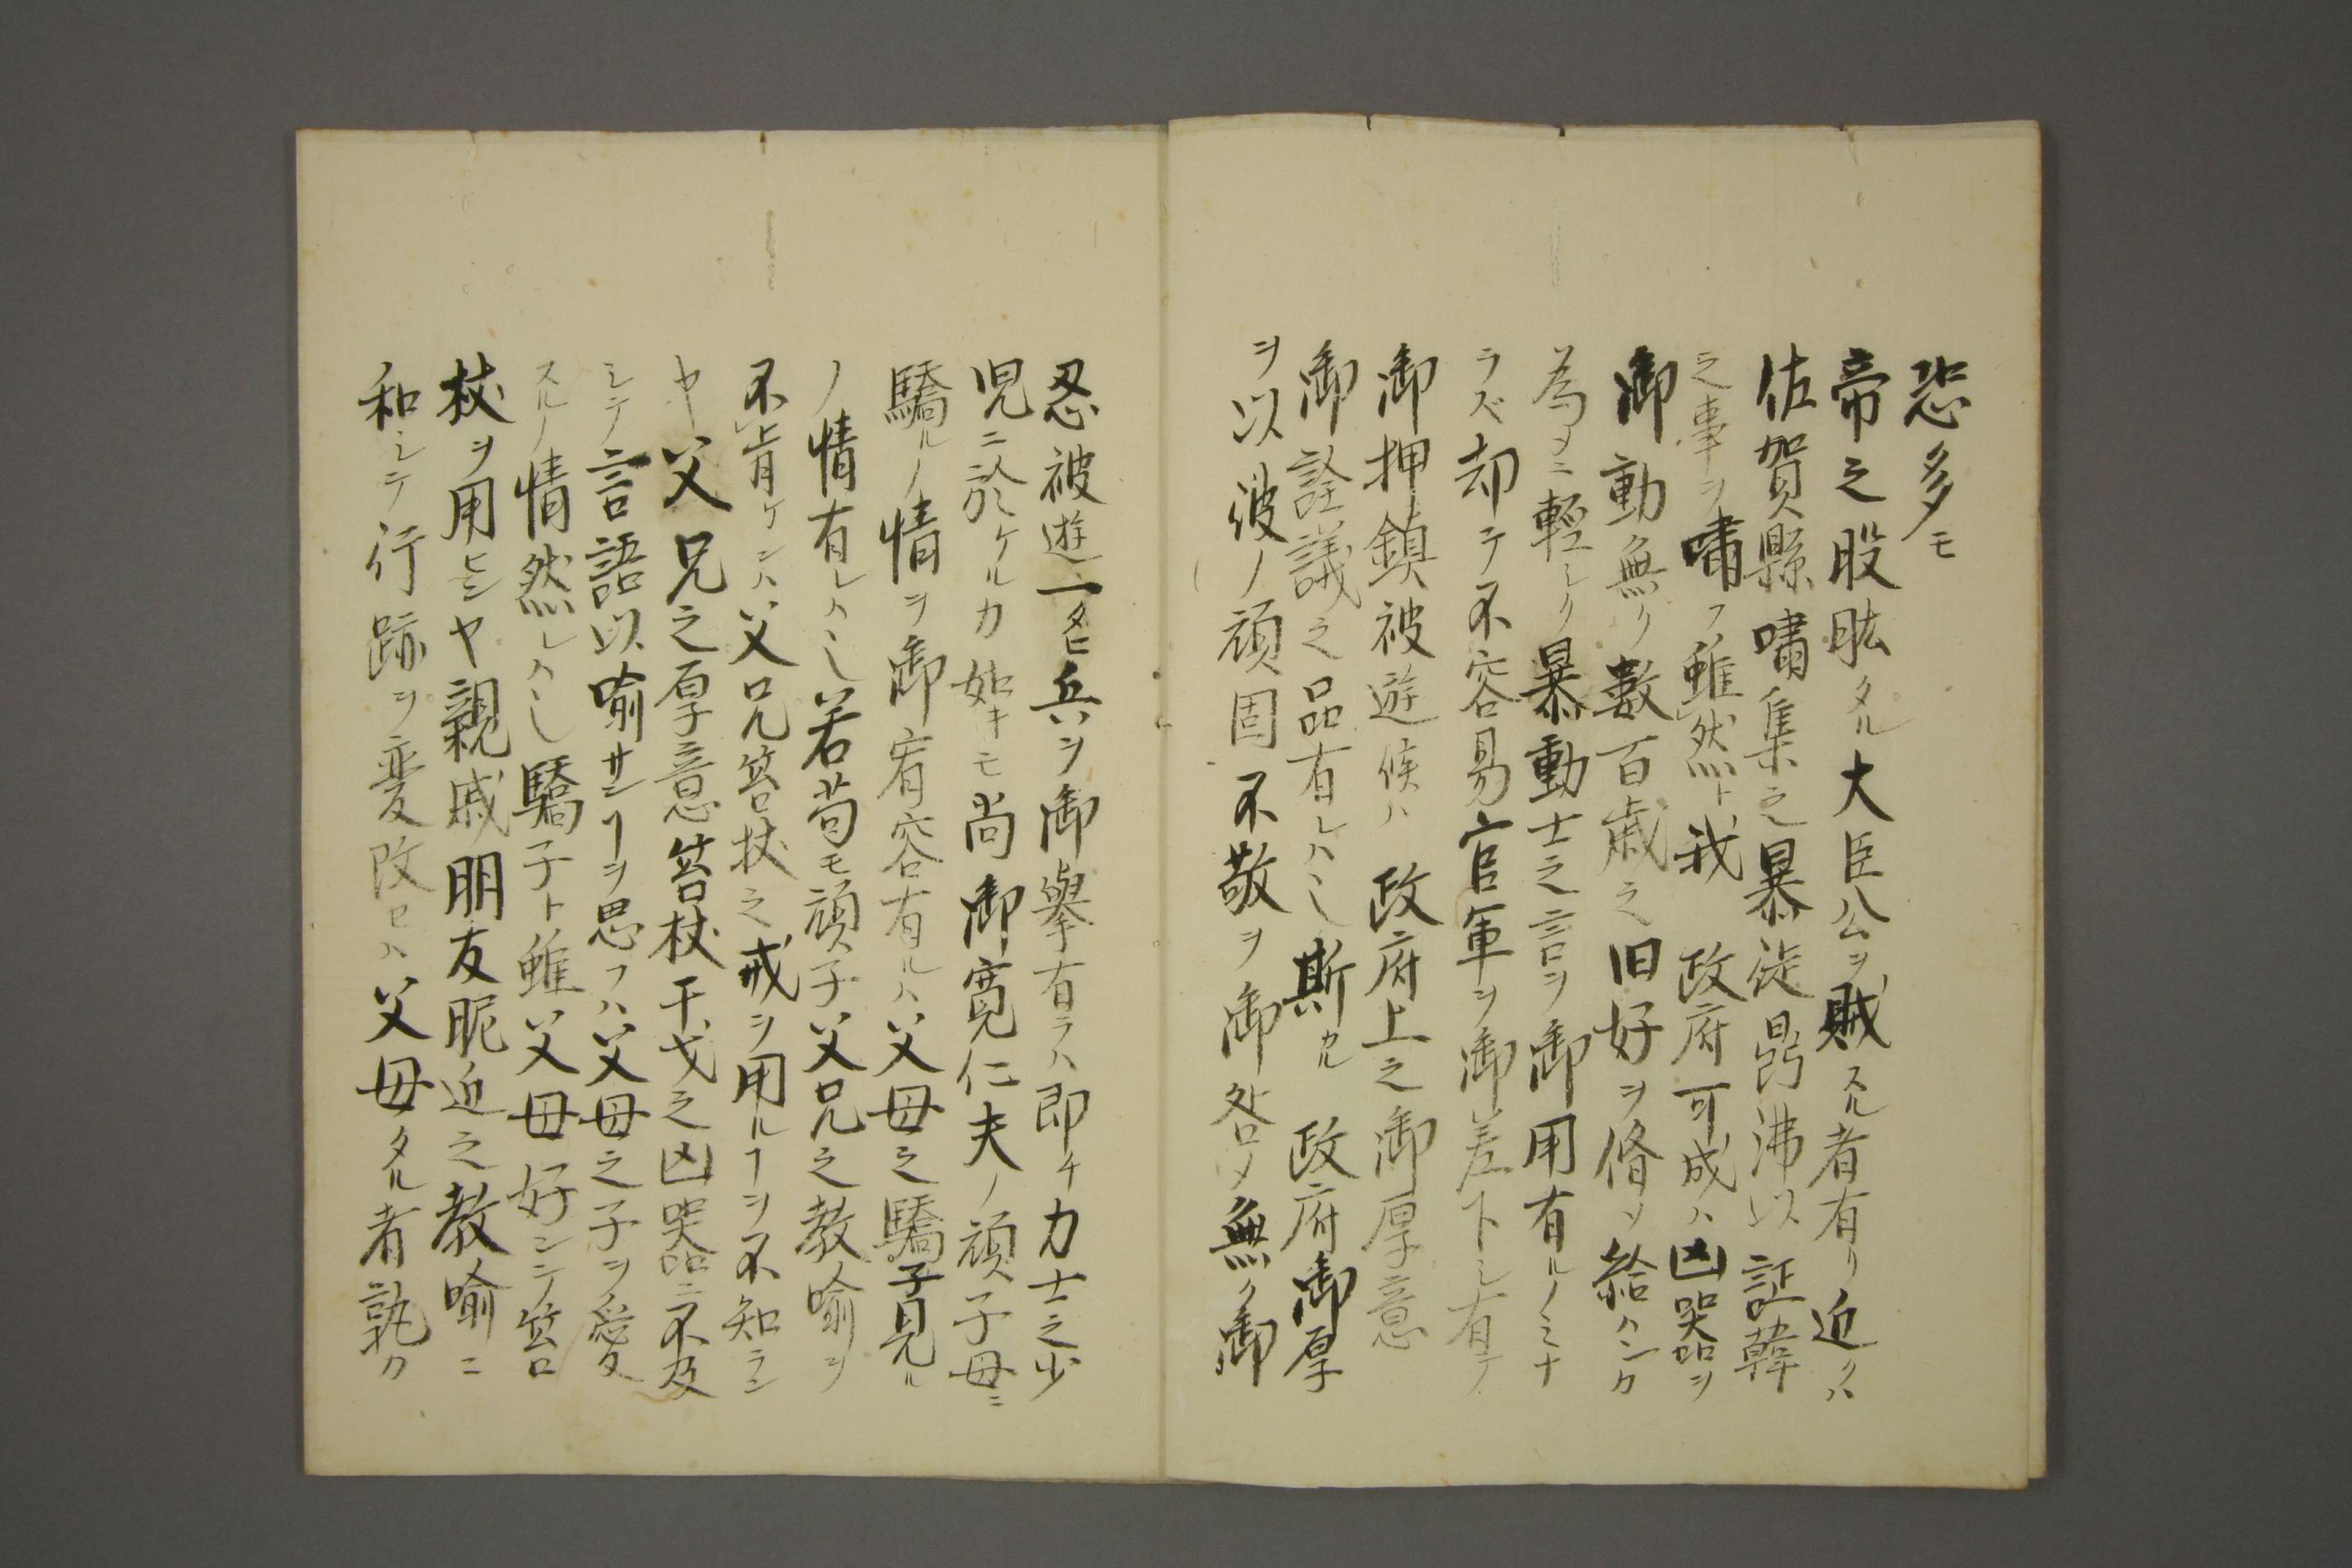 恐多モ
帝之股肱タル大臣公ヲ賊スル者有リ近クハ
佐賀縣嘯集之暴徒鼎沸以証韓
之事ヲ嘯フ雖然ト我　政府可成ハ凶器ヲ
御動無ク數百歳之旧好ヲ脩メ給ハンカ
為メニ輕シク暴動士之言ヲ御用有ルノミナ
ラズ却テ不容易官軍ヲ御差下シ有テ
御押鎮被遊候ハ　政府上之御厚意
御詮議之品有レハシ斯カル　政府御厚
ヲ以彼ノ頑固不敬ヲ御咎メ無ク御
忍被遊一タヒ兵ヲ御擧有ラハ即チ力士之少
児ニ於ケルカ如キモ尚御寛仁夫ノ頑子母ニ
驕ルノ情ヲ御宥容有ルハ父母之驕子見ル
ノ情有レハシ若苟モ頑子父兄之教喩ヲ
不肯ケンハ父兄笞杖之戒ヲ用ルヿヲ不知ラン
ヤ父兄之厚意笞杖干戈之凶器ニ不及
シテ言語以喩サンヿヲ思フハ父母之子ヲ愛
スルノ情然レハシ驕子ト雖父母好ンテ笞
杖ヲ用ヒンヤ親戚朋友昵近之教喩ニ
和シテ行跡ヲ変改セハ父母タル者孰カ